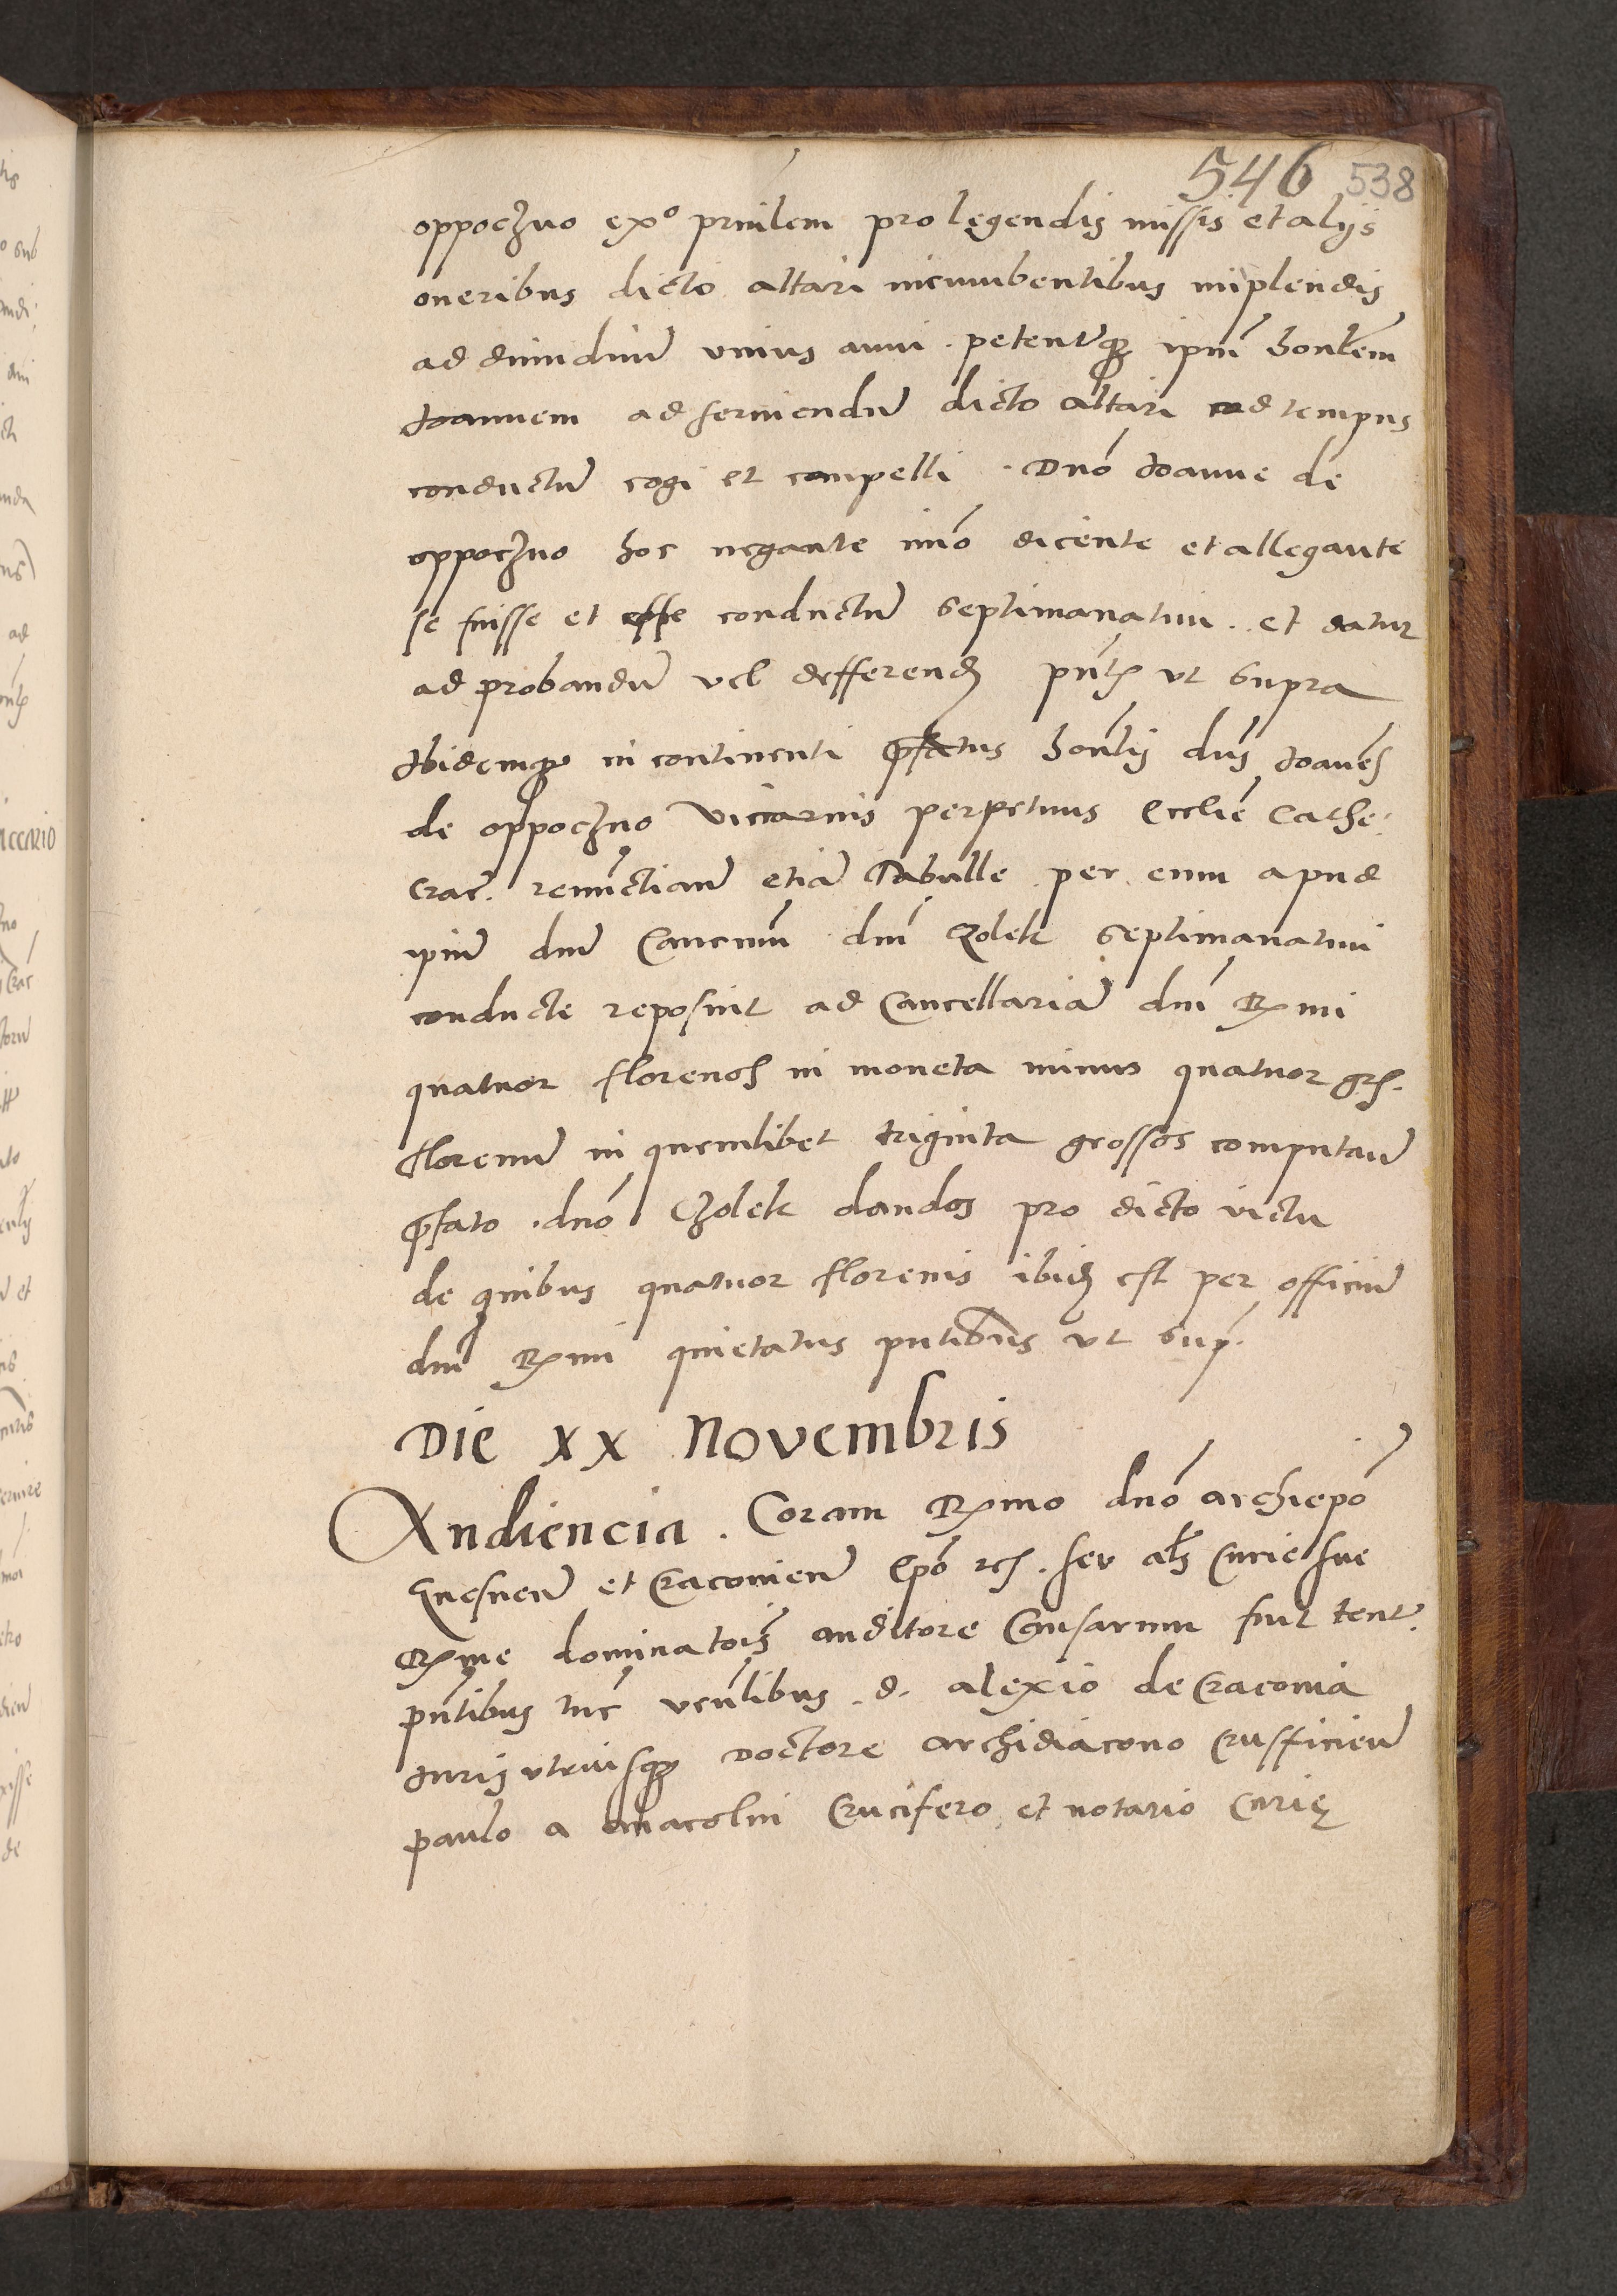 546 538
oppoczno exº prinilem pro legendis missis et alijs
oneribus dicto altari incumbentibus implendis
ad dimidiu̅ vnius anni . petentq3 ipm̅ hon̅lem
Joannem ad serviendu̅ dicto altari ad tempus
conductu̅ cogi et compelli . Dno̅ Joanne de
oppoczno hoc negante imo̅ dicente et allegante
se fuisse et esse conductu̅ septimanatim . et datur
ad probandu̅ vel defferend pn̅t vt supra
Ibidemq3 in continenti pfatus hon̅lis dn̅s Joan̅es
de oppoczno viccarius perpetuus Ecclie̅ Cathe:
Crac̅. renu̅ctian̅ etia̅ Tabulle per eum apud
ipm̅ dn̅m Canc̅num dn̅m Czolek septimanatim
conducte reposuit ad Cancellaria̅ dn̅i R mi
quatuor florenos in moneta minus quatuor grs.
florenu̅ in quemlibet triginta grossos computan̅
pfato . dno̅ Czolek dandos pro dicto victu
de quibus quatuor florenis ibid est per officiu̅
dn̅i R mi quietatus pn̅tibus vt sup.
Die xx Novembris
Audiencia . Coram R mo dno̅ archiepo̅
Gnesnen̅ et Cracovien̅ Epo̅ etc . seu al̅s Curie sue
R me dominatois̅ auditore Causarum fuit tent.
pn̅tibus tu̅c ven̅libus . d . alexio de Cracovia
Juris vtriusq3 Doctore archidiacono Crusficien̅
paulo a Crucifero et notario Curie